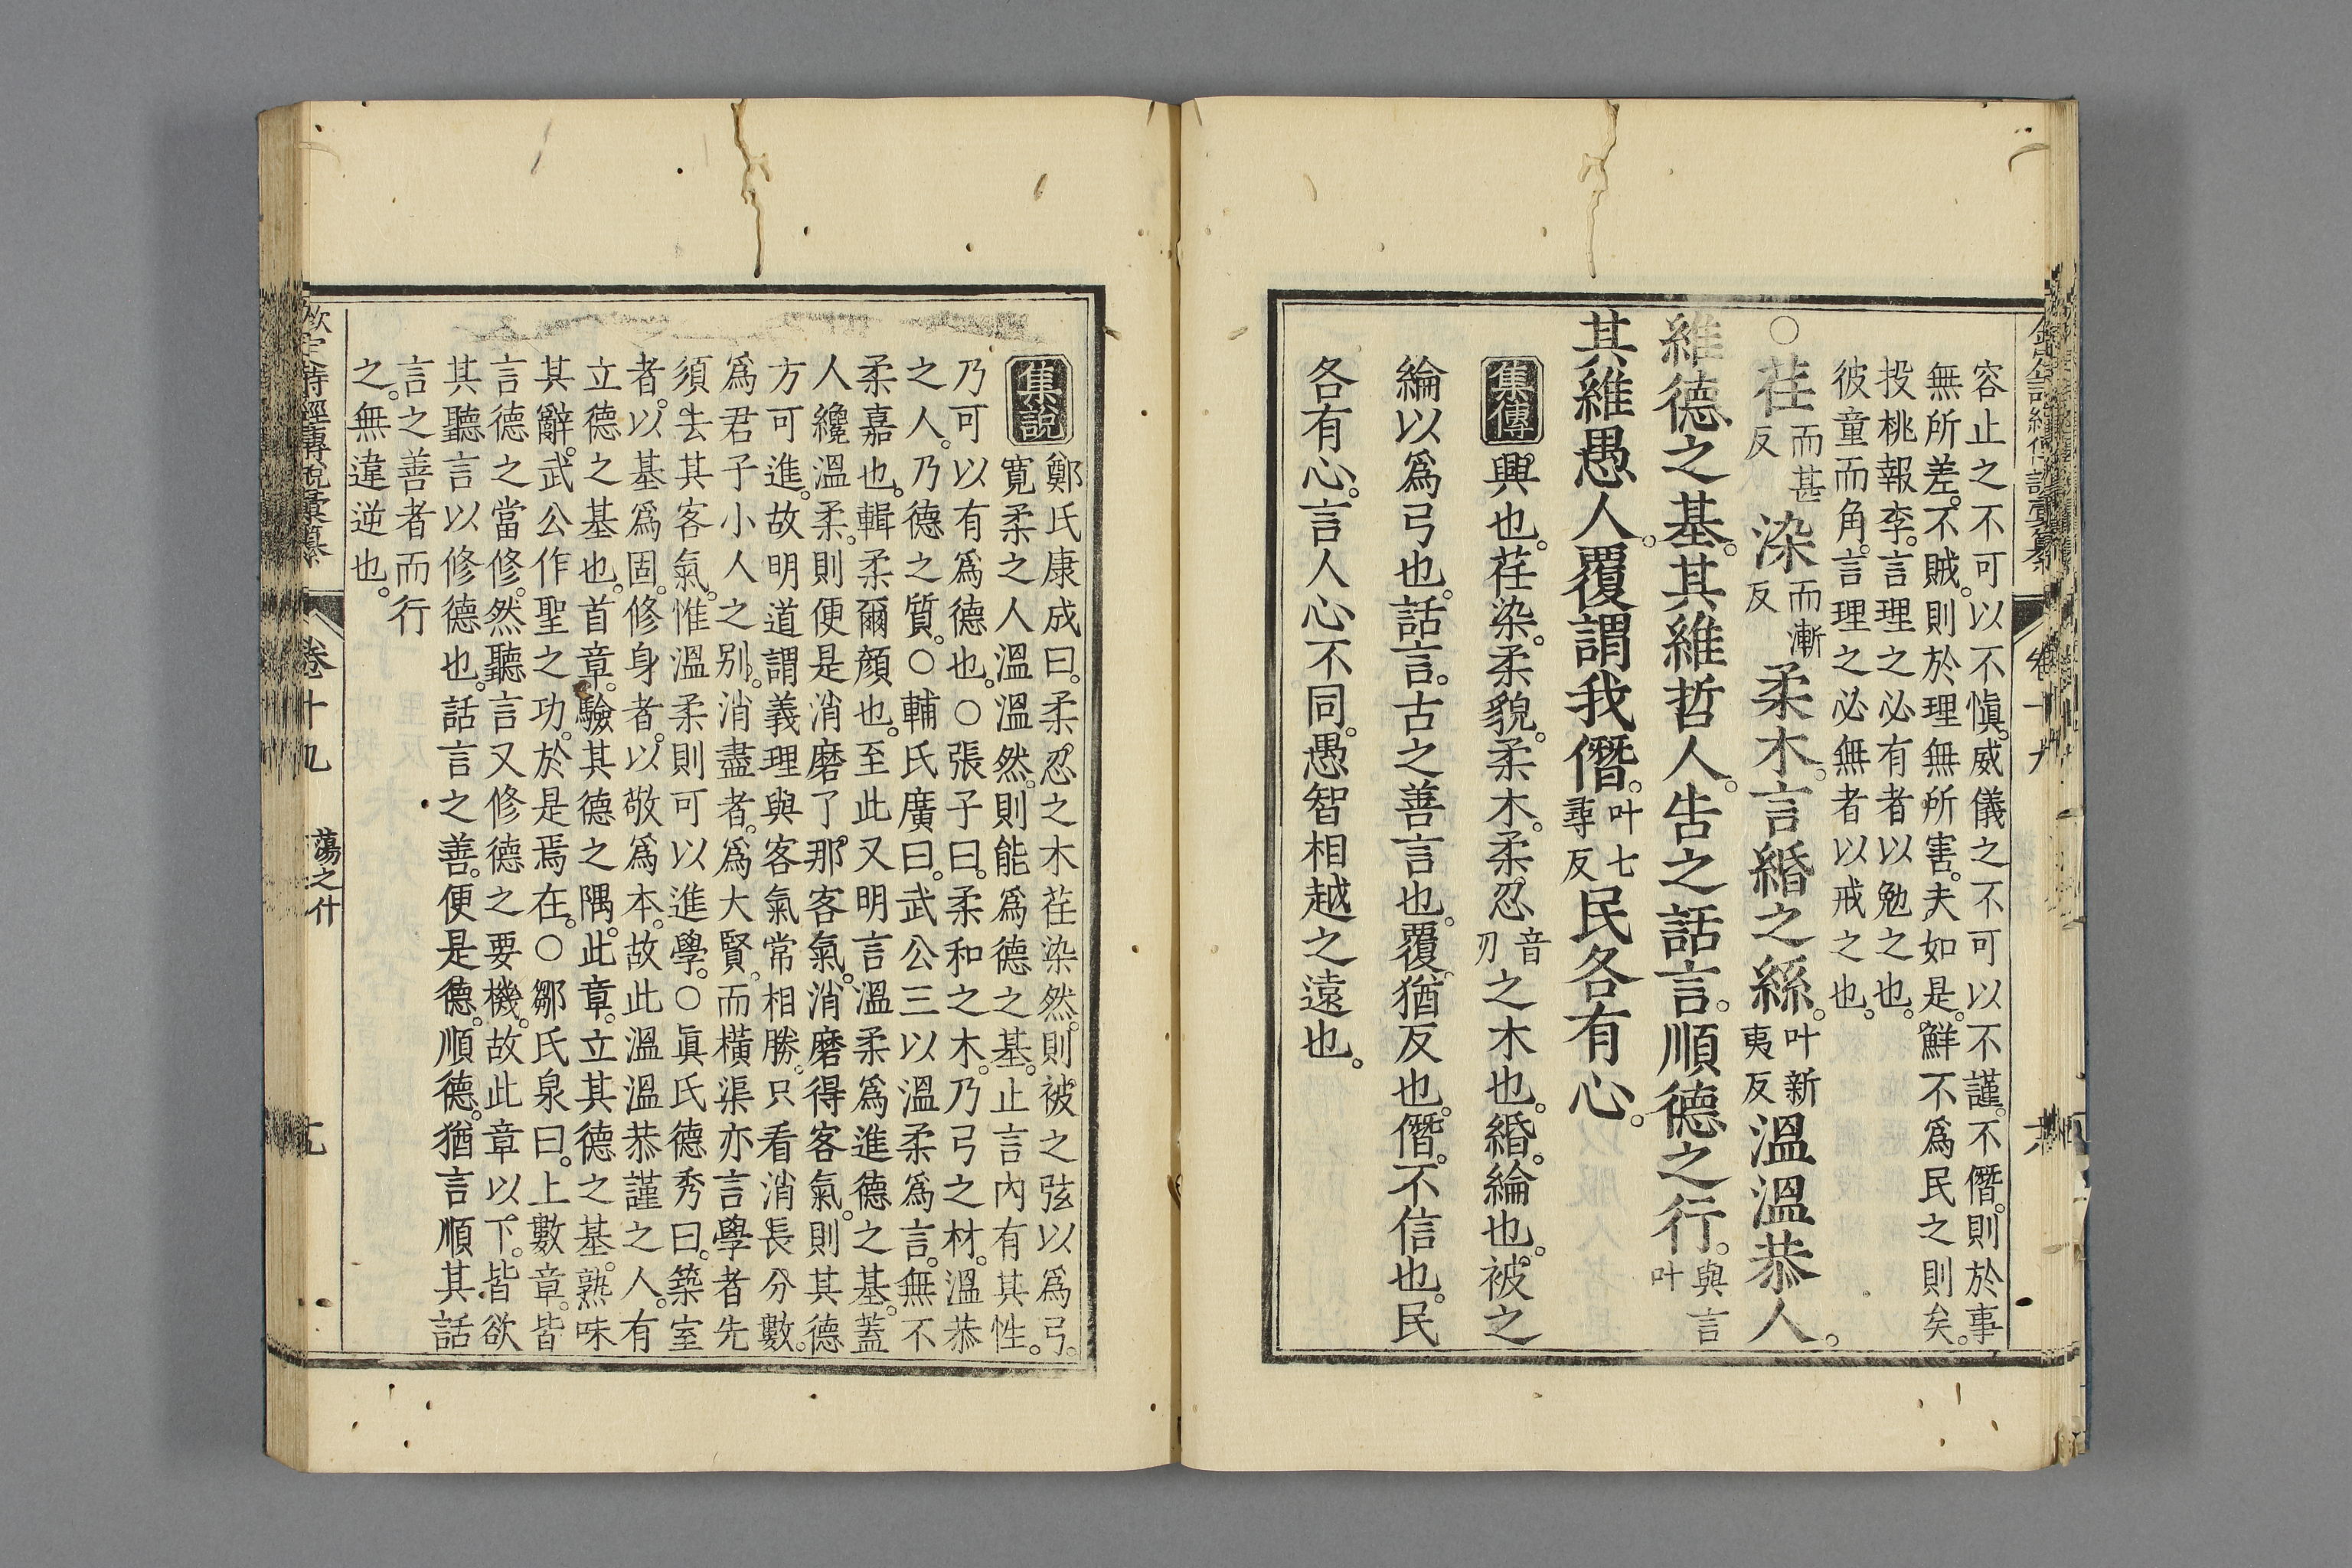 容止之不可以不愼。威儀之不可以不謹。不僭。則於事
無所差。不賊。則於理無所害。夫如是。鮮不爲民之則矣。
投桃報李。言理之必有者以勉之也。
彼童而角。言理之必無者以戒之也。
○荏而甚反染而漸反柔木。言緡之絲。叶新夷反溫溫恭人。
維德之基。其維哲人。告之話言。順德之行。與言叶
其維愚人。覆謂我僭。叶七尋反民各有心。
集傳 興也。荏染。柔貌。柔木。柔忍音刃之木也。緡。綸也。被之
綸以爲弓也。話言。古之善言也。覆。猶反也。僭。不信也。民
各有心。言人心不同。愚智相越之遠也。
集說 鄭氏康成曰。柔忍之木荏染然。則被之弦以爲弓。
寬柔之人溫溫然。則能爲德之基。止言內有其性。
乃可以有爲德也。○張子曰。柔和之木。乃弓之材。溫恭
之人。乃德之質。○輔氏廣曰。武公三以溫柔爲言。無不
柔嘉也。輯柔爾顏也。至此又明言溫柔爲進德之基。蓋
人纔溫柔。則便是消磨了那客氣。消磨得客氣。則其德
方可進。故明道謂義理與客氣常相勝。只看消長分數。
爲君子小人之別。消盡者。爲大賢。而橫渠亦言學者先
須去其客氣。惟溫柔則可以進學。○眞氏德秀曰。築室
者。以基爲固。修身者。以敬爲本。故此溫溫恭謹之人。有
立德之基也。首章。驗其德之隅。此章。立其德之基。熟味
其辭。武公作聖之功。於是焉在。○鄒氏泉曰。上數章。皆
言德之當修。然聽言又修德之要機。故此章以下。皆欲
其聽言以修德也。話言之善。便是德。順德。猶言順其話
言之善者而行
之。無違逆也。
欽定詩經傳說彙纂 卷十九 蕩之什